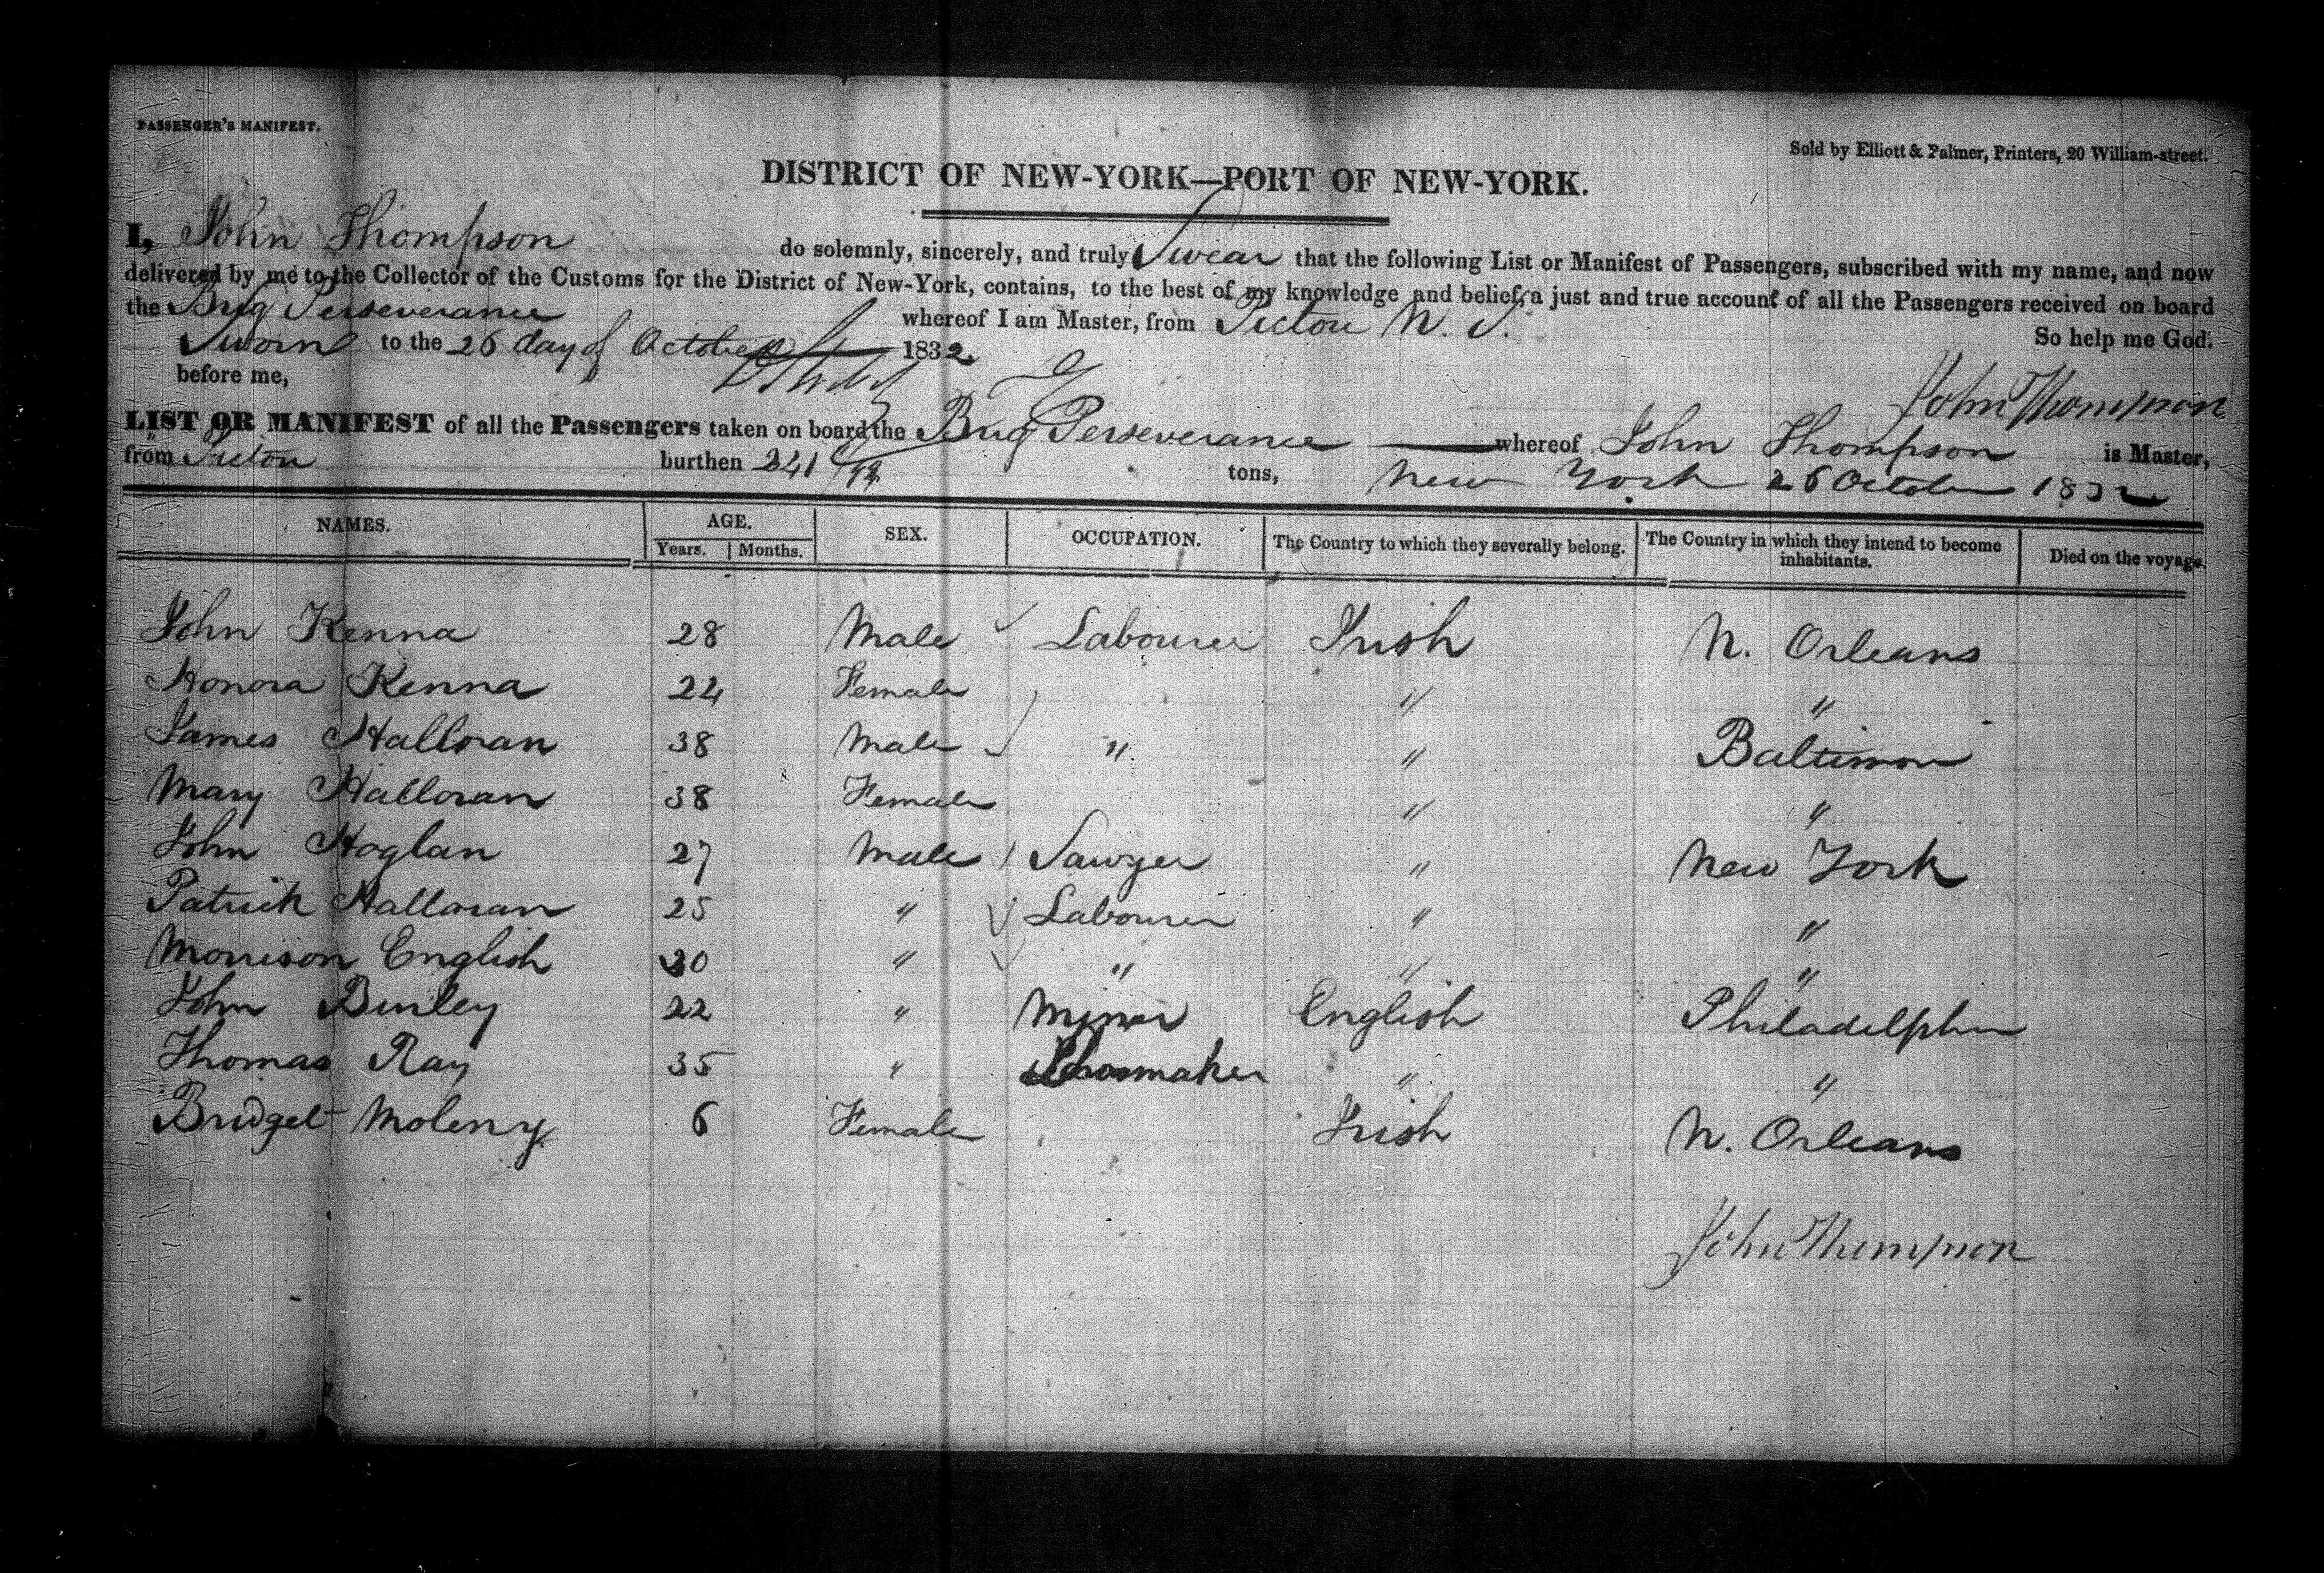 PASSENGER'S MANIFEST.
Sold by Elliott & Palmer, Printers, 20 William-street.
DISTRICT OF NEW-YORK—PORT OF NEW-YORK.
I, John Thompson do solemnly, sincerely, and truly Swear that the following List or Manifest of Passengers, subscribed with my name, and now
delivered by me to the Collector of the Customs for the District of New-York, contains, to the best of my knowledge and belief, a just and true account of all the Passengers received on board
the Brig Perseverance whereof I am Master, from Pictou N. S.
Sworn to the 26 day of October 1832. So help me God.
before me,
John Thompson
LIST OR MANIFEST of all the Passengers taken on board the Brig Perseverance whereof John Thompson is Master,
from Pictou burthen 241 tons, New York 26 October 1832
NAMES. AGE. SEX. OCCUPATION. The Country to which they severally belong. The Country in which they intend to become inhabitants. Died on the voyage.
Years. Months.
John Kenna 28 Male Labourer Irish N. Orleans
Honora Kenna 24 Female " "
James Halloran 38 Male " " Baltimore
Mary Halloran 38 Female " "
John Hoglan 27 Male Sawyer " New York
Patrick Halloran 25 " Labourer " "
Morrison English 30 " " " "
John Burley 22 " Miner English Philadelphia
Thomas Ray 35 " Shoemaker " "
Bridget Moleny 6 Female Irish N. Orleans
John Thompson